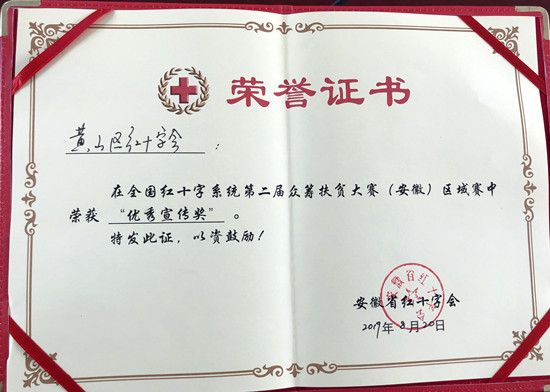 荣誉证书
黄山区红十字会：
在全国红十字系统第二届众筹扶贫大赛（安徽）区域赛中
荣获 “优秀宣传奖” 。
特发此证，以资鼓励！
安徽省红十字会
安徽省红十字会
2017年8月20日